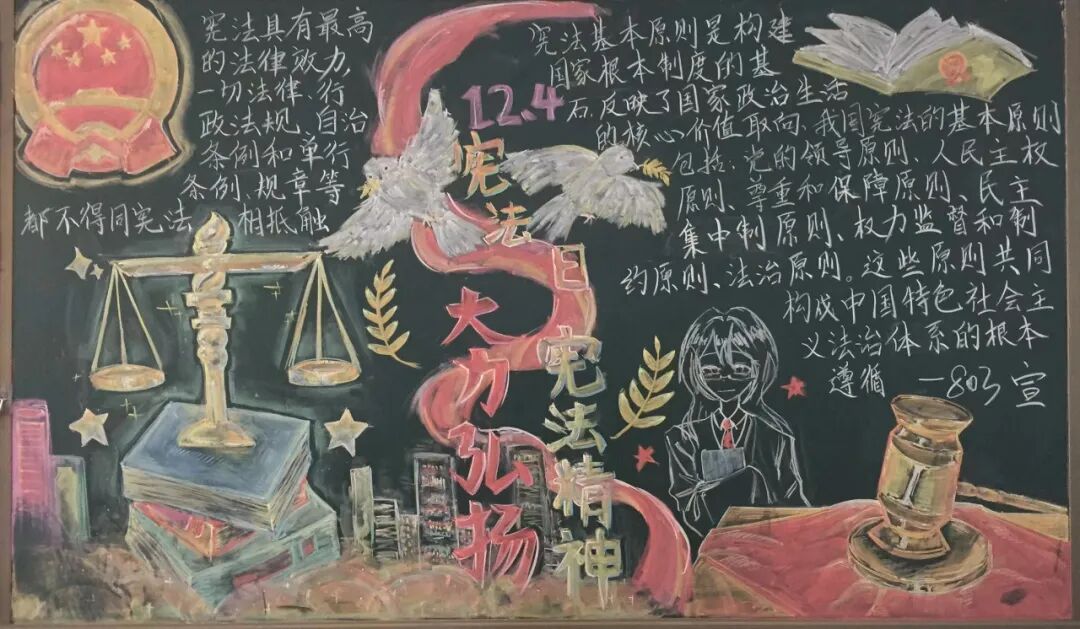 宪法具有最高
的法律效力,
一切法律、行
政法规、自治
条例和单行
条例、规章等
都不得同宪法 相抵触
12.4
宪法日
大力弘扬
宪法精神
宪法基本原则是构建
国家根本制度的基
石,反映了国家政治生活
的核心价值取向,我国宪法的基本原则
包括:党的领导原则、人民主权
原则、尊重和保障原则、民主
集中制原则、权力监督和制
约原则、法治原则。这些原则共同
构成中国特色社会主
义法治体系的根本
遵循 —803宣